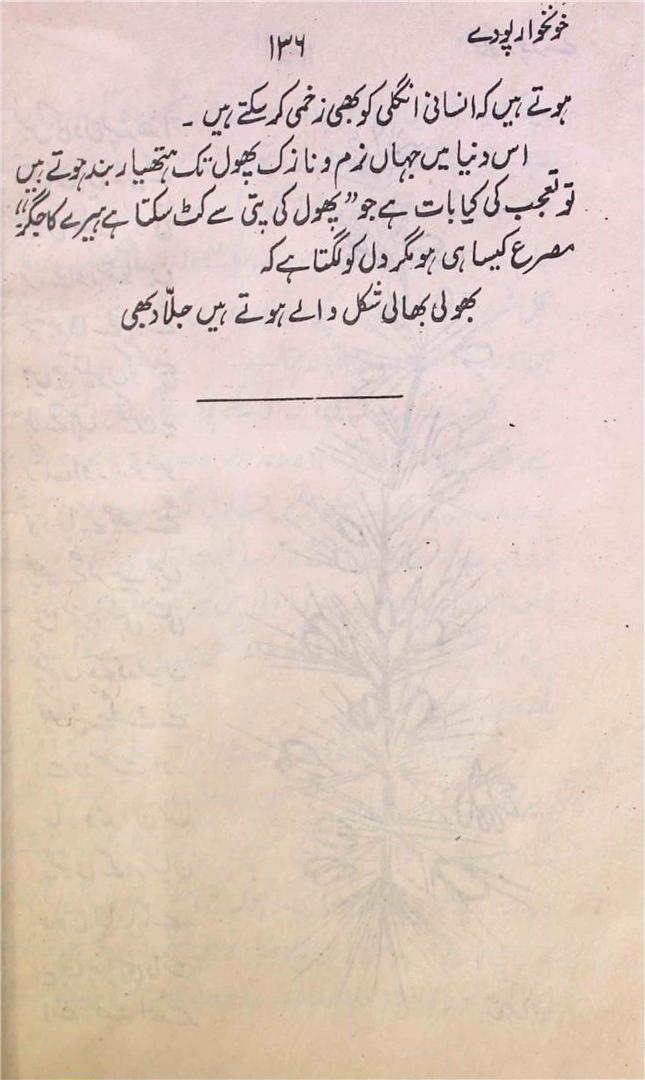 خونخوار پودے
۱۳۶
ہوتے ہیں کہ انسانی انگلی کو بھی زخمی کر سکتے ہیں ۔
اس دنیا میں جہاں نرم و نازک پھول تک ہتھیار بند ہوتے ہیں
تو تعجب کی کیا بات ہے جو ”پھول کی پتی سے کٹ سکتا ہے ہیرے کا جگر“
مصرع کیسا ہی ہو مگر دل کو لگتا ہے کہ
بھولی بھالی شکل والے ہوتے ہیں جلّاد بھی